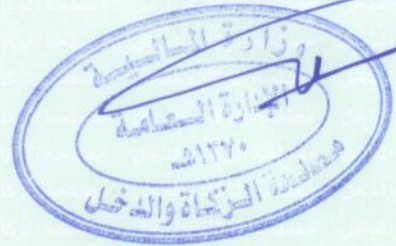 وزارة المالية
الإدارة العامة
١٣٧٠هـ
مصلحة الزكاة والدخل